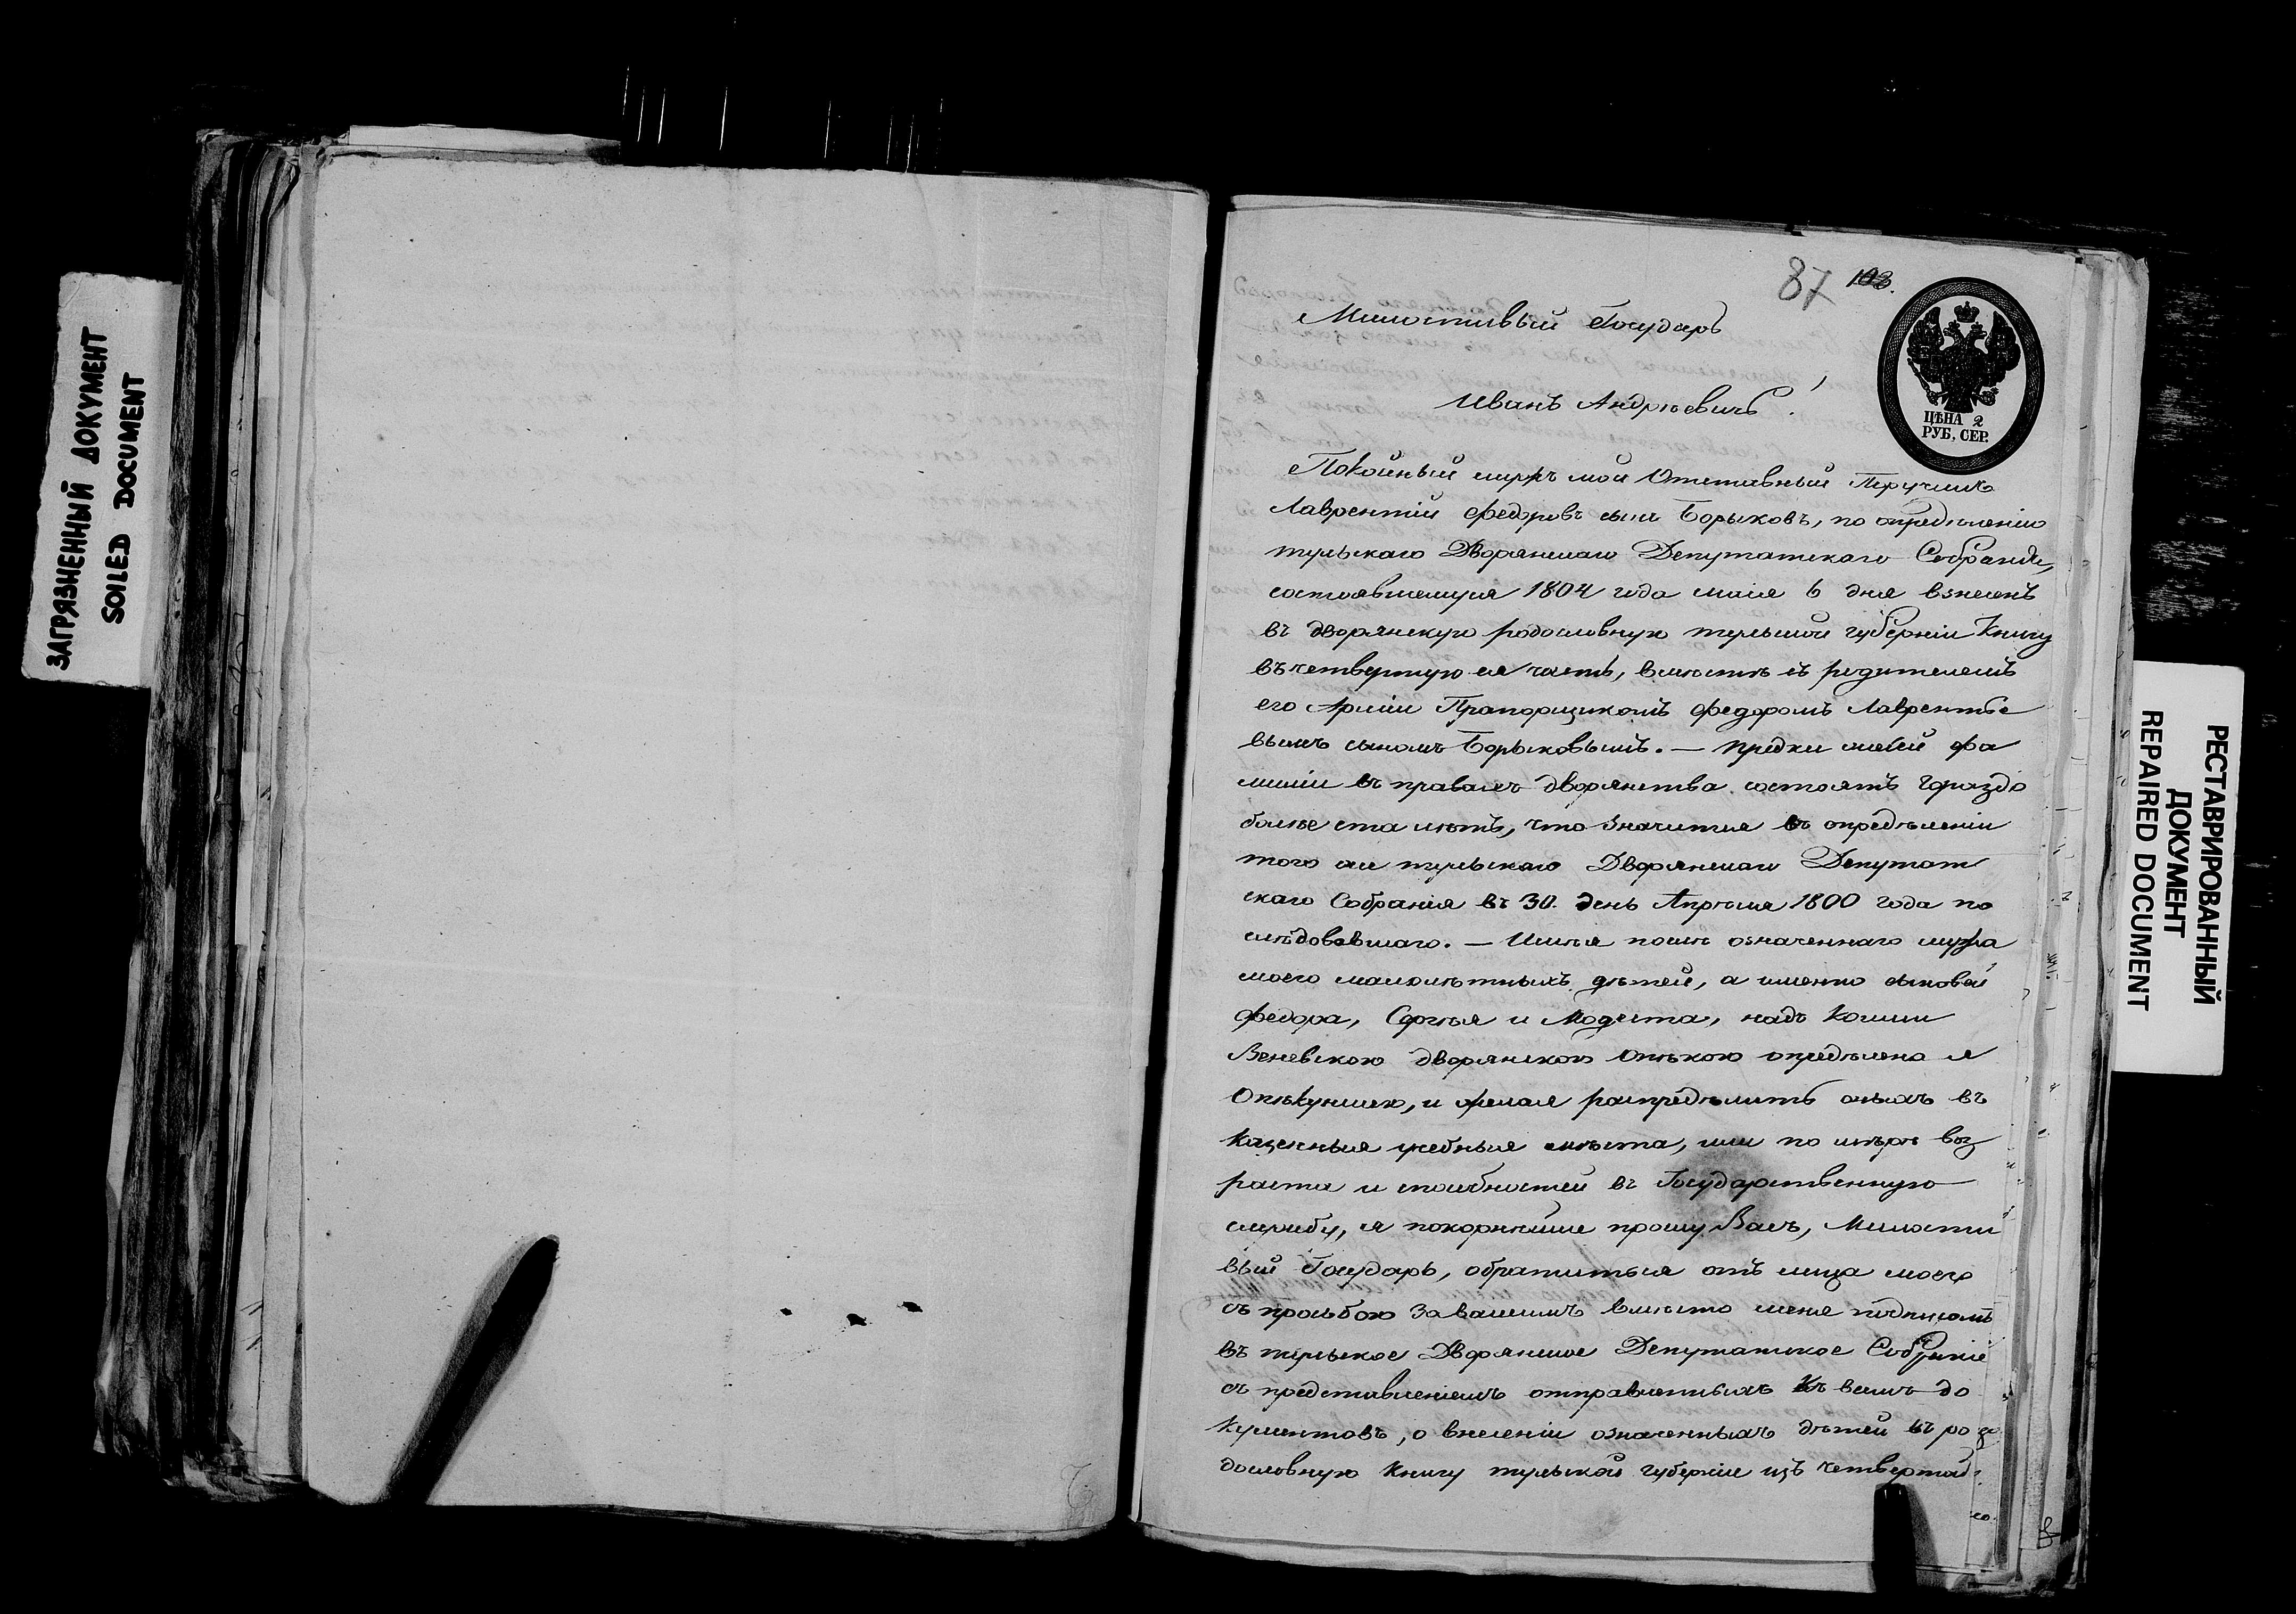 ЗАГРЯЗНЕННЫЙ ДОКУМЕНТ
SOILED DOCUMENT
87 103.
ЦѢНА 2
РУБ. СЕР.
Милостивый Государь
Иванъ Андреевичъ!
Покойный мужъ мой Отставный Поручикъ
Лаврентій Федоровъ сынъ Борыковъ, по опредѣленію
тульскаго Дворянскаго Депутатскаго Собранія,
состоявшемуся 1804 года маія 6 дня внесенъ
въ дворянскую родословную тульской губерніи Книгу
въ четвертую ея часть, вмѣстѣ съ родителемъ
его Арміи Прапорщикомъ Федоромъ Лаврентье
вымъ сыномъ Борыковымъ. — Предки моей фа
миліи въ правахъ дворянства состоятъ гораздо
болѣе ста лѣтъ, что значится въ опредѣленіи
того же тульскаго Дворянскаго Депутат
скаго Собранія въ 30. день Апрѣля 1800 года по
слѣдовавшаго. — Имѣя послѣ означеннаго мужа
моего малолѣтныхъ дѣтей, а именно сыновей
Федора, Сергѣя и Модеста, надъ коими
Веневскою дворянскою Опѣкою опредѣлена я
Опѣкуншею, и желая распредѣлить оныхъ въ
Казенныя учебныя мѣста, или по мѣрѣ воз
раста и способностей въ Государственную
службу, я покорнѣйше прошу Васъ, Милости
вый Государь, обратиться отъ лица моего
съ прозьбою за вашимъ вмѣсто меня подписомъ
въ тульское Дворянское Депутатское Собраніе
съ представленіемъ отправленныхъ къ вамъ до
кументовъ, о внесеніи означенныхъ дѣтей въ ро
дословную Книгу тульской губерніи изъ четвертой
РЕСТАВРИРОВАННЫЙ
ДОКУМЕНТ
REPAIRED DOCUMENT